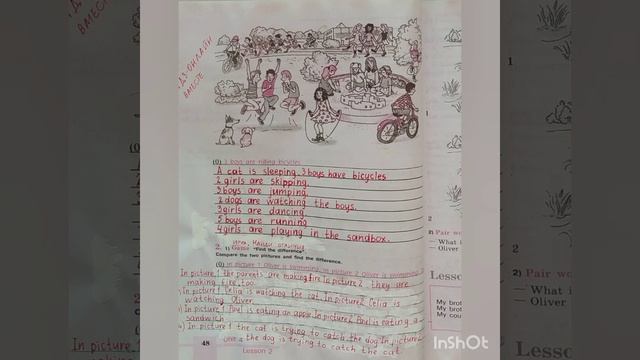 ДЗ-ОНЛАЙН
ВМЕСТЕ
(0) 3 boys are riding bicycles
A cat is sleeping. 3 boys have bicycles
2 girls are skipping.
3 boys are jumping.
2 dogs are watching the boys.
3 girls are dancing.
5 boys are running
4 girls are playing in the sandbox.
2. 1) Game "Find the difference".
Compare the two pictures and find the difference.
(0) In picture 1 Oliver is swimming, in picture 2 Oliver is swimming
In picture 1 the parents are making fire. In picture 2 they are
making fire, too.
In picture 1 Celia is watching the cat. In picture 2 Celia is
watching Oliver.
In picture 1 Paul is eating an apple. In picture 2 Paul is eating a
sandwich
In picture 1 the cat is trying to catch the dog. In picture 2
the dog is trying to catch the cat.
In picture
48
Unit 4
Lesson 2
1
2
in Pair wor
— What i
— Oliver
Lesso
My brot
My brot
My cou
1
2
2) Pair wo
— What i
— Oliver
InShOt